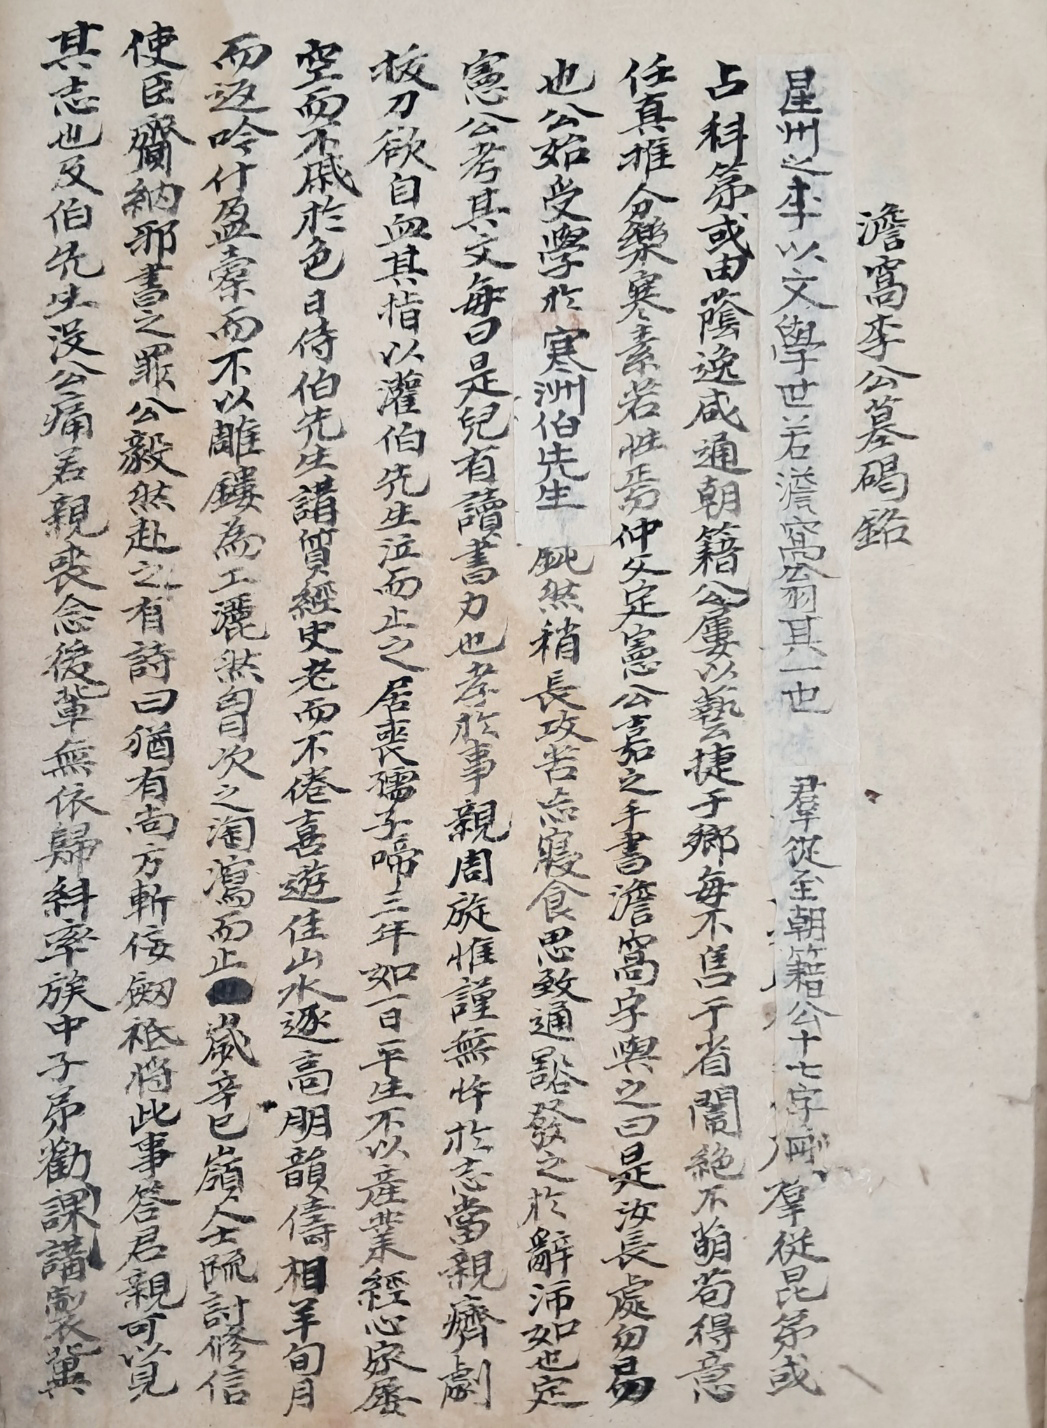 澹窩李公墓碣銘
星州之李以文學世若澹窩翁其一也 羣從至朝籍公十七字刪 羣從昆弟或
占科第或由蔭逸咸通朝籍公屢以藝捷于鄉每不售于省闈絶不萌苟得意
任真推分樂寒素若性焉仲父定憲公嘉之手書澹窩字與之曰是汝長處勿易
也公始受學於寒洲伯先生鈍然稍長攻苦忘寢食思致通豁發之於辭沛如也定
憲公考其文每曰是兒有讀書力也孝於事親周旋惟謹無忤於志當親癠劇
拔刀欲自血其指以灌伯先生泣而止之居喪孺子啼三年如一日平生不以産業經心家屢
空而不戚於色日侍伯先生講質經史老而不倦喜遊佳山水逐高朋韻儔相羊旬月
而返吟什盈橐而不以雕鏤為工灑然胷次之淘瀉而止歲辛巳嶺人士䟽討修信
使臣齎納邪書之罪公毅然赴之有詩曰猶有尚方斬佞劒祗將此事答君親可以見
其志也及伯先生沒公痛若親喪念後輩無依歸糾率族中子弟勸課講製冀